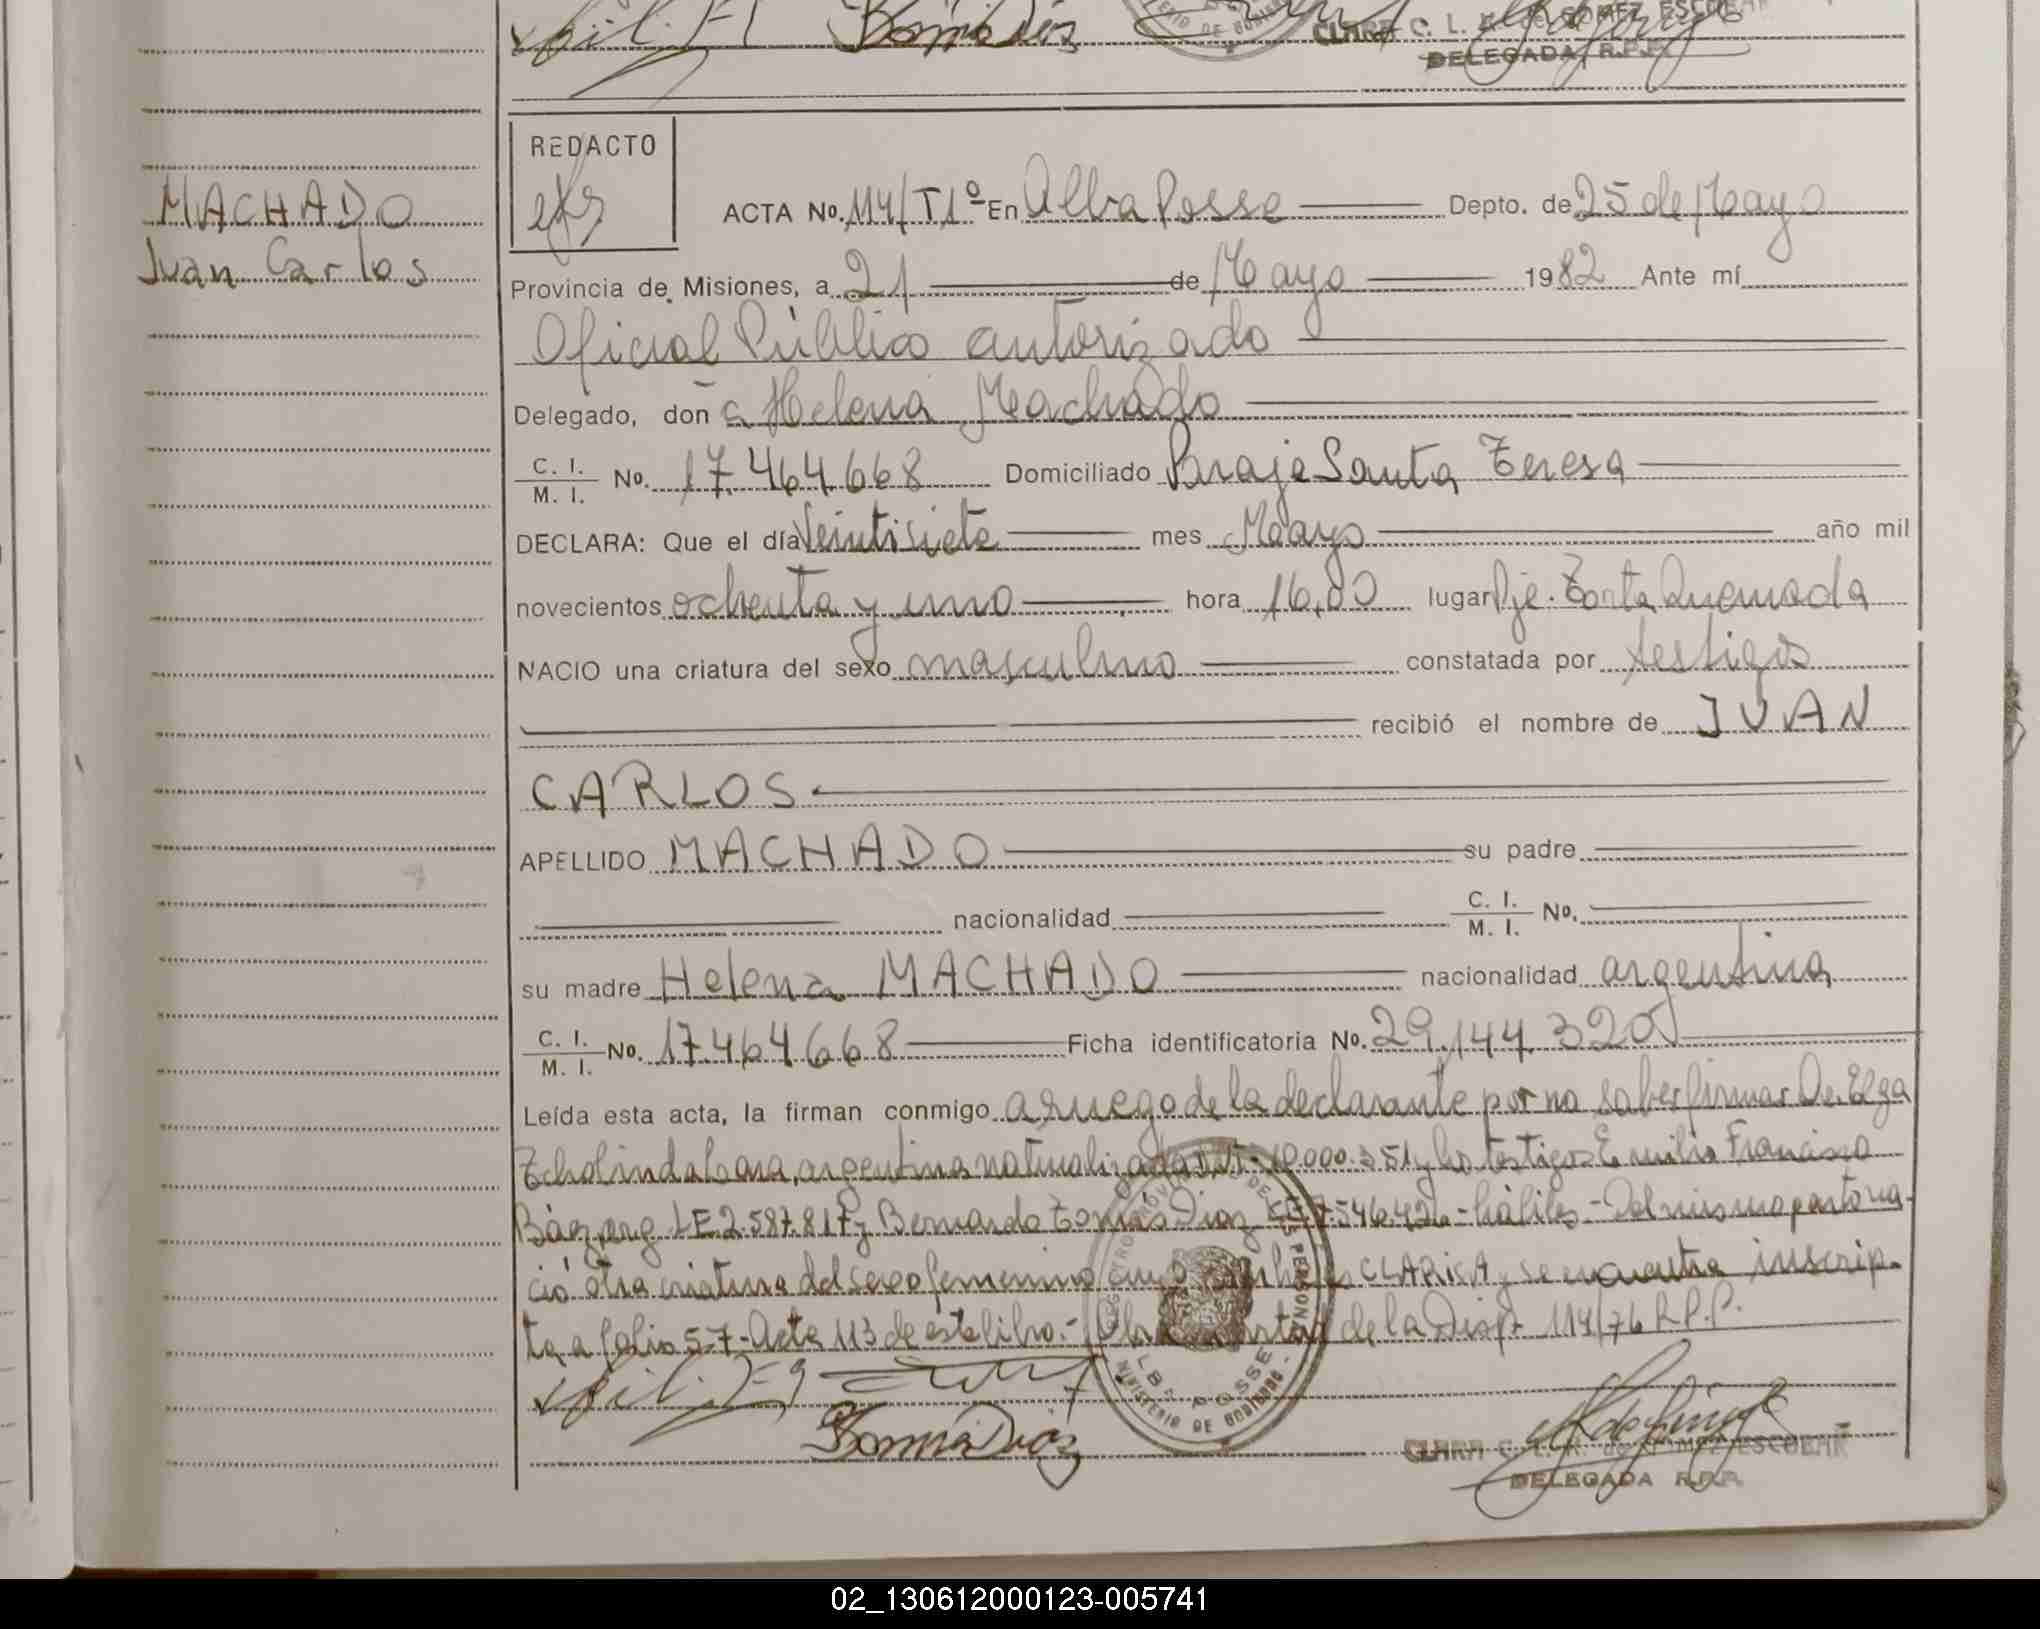 CLARA C. L. K. de GOMEZ ESCOBAR
DELEGADA R.P.P.
MACHADO
Juan Carlos
REDACTO
ACTA No. 114/T1º En Alba Posse Depto. de 25 de Mayo
Provincia de Misiones, a 21 de Mayo 1982 Ante mí
Oficial Público autorizado
Delegado, don a Helena Machado
C. I. / M. I. No. 17.464.668 Domiciliado Paraje Santa Teresa
DECLARA: Que el día Veintisiete mes Mayo año mil
novecientos ochenta y uno hora 16,00 lugar Pje. Torta Quemada
NACIO una criatura del sexo masculino constatada por testigos
recibió el nombre de JUAN
CARLOS
APELLIDO MACHADO su padre
nacionalidad C. I. / M. I. No.
su madre Helena MACHADO nacionalidad argentina
C. I. / M. I. No. 17.464.668 Ficha identificatoria No. 29.144.320
Leída esta acta, la firman conmigo a ruego de la declarante por no saber firmar Da. Elga
argentina naturalizada 10.000.351 y los testigos Emilio Francisco
LE 2.587.817 y Bernardo Tomás Diaz 7.546.426 - hábiles - Del mismo parto na-
ció otra criatura del sexo femenino cuyo nombre es CLARISA y se encuentra inscrip-
ta a folio 57 - Acta 113 de este libro.- de la Disp. 114/76 R.P.P.
Tomás Diaz
CLARA C. L. K. de GOMEZ ESCOBAR
DELEGADA R.P.P.
02_130612000123-005741